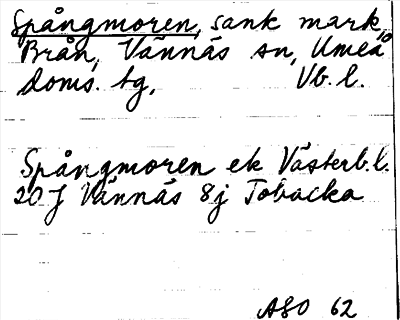 Spångmoren, sank mark,
Brån, Vännäs sn, Umeå
doms. tg, Vb. l.
Spångmoren ek Västerb.l.
20 J Vännäs 8j Tobacka
ASO 62